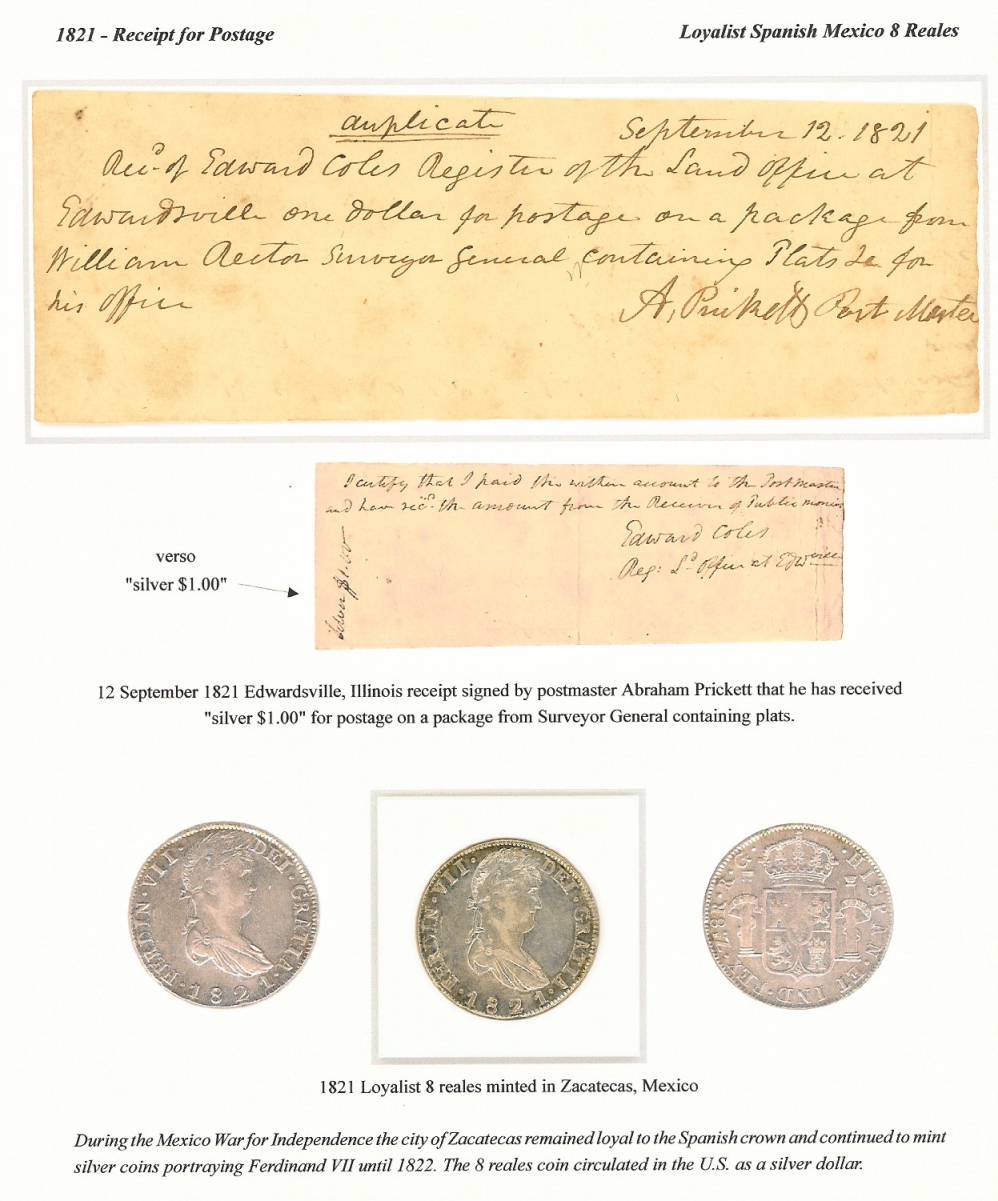 1821 - Receipt for Postage
Loyalist Spanish Mexico 8 Reales
duplicate
September 12. 1821
Recd. of Edward Coles Register of the Land Office at
Edwardsville one dollar for postage on a package from
William Rector Surveyor General containing Plats &c for
his office
A. Prickett Post Master
I certify that I paid the within account to the Post Master
and have recd. the amount from the Receiver of Public monies
Edward Coles
Reg: Ld. Office at Edwville
Silver $1.00
verso
"silver $1.00"
12 September 1821 Edwardsville, Illinois receipt signed by postmaster Abraham Prickett that he has received
"silver $1.00" for postage on a package from Surveyor General containing plats.
FERDIN·VII· DEI·GRATIA·
·1821·
FERDIN·VII· DEI·GRATIA·
·1821·
·HISPAN·ET IND·REX·Zs·8R·R·G·
1821 Loyalist 8 reales minted in Zacatecas, Mexico
During the Mexico War for Independence the city of Zacatecas remained loyal to the Spanish crown and continued to mint
silver coins portraying Ferdinand VII until 1822. The 8 reales coin circulated in the U.S. as a silver dollar.